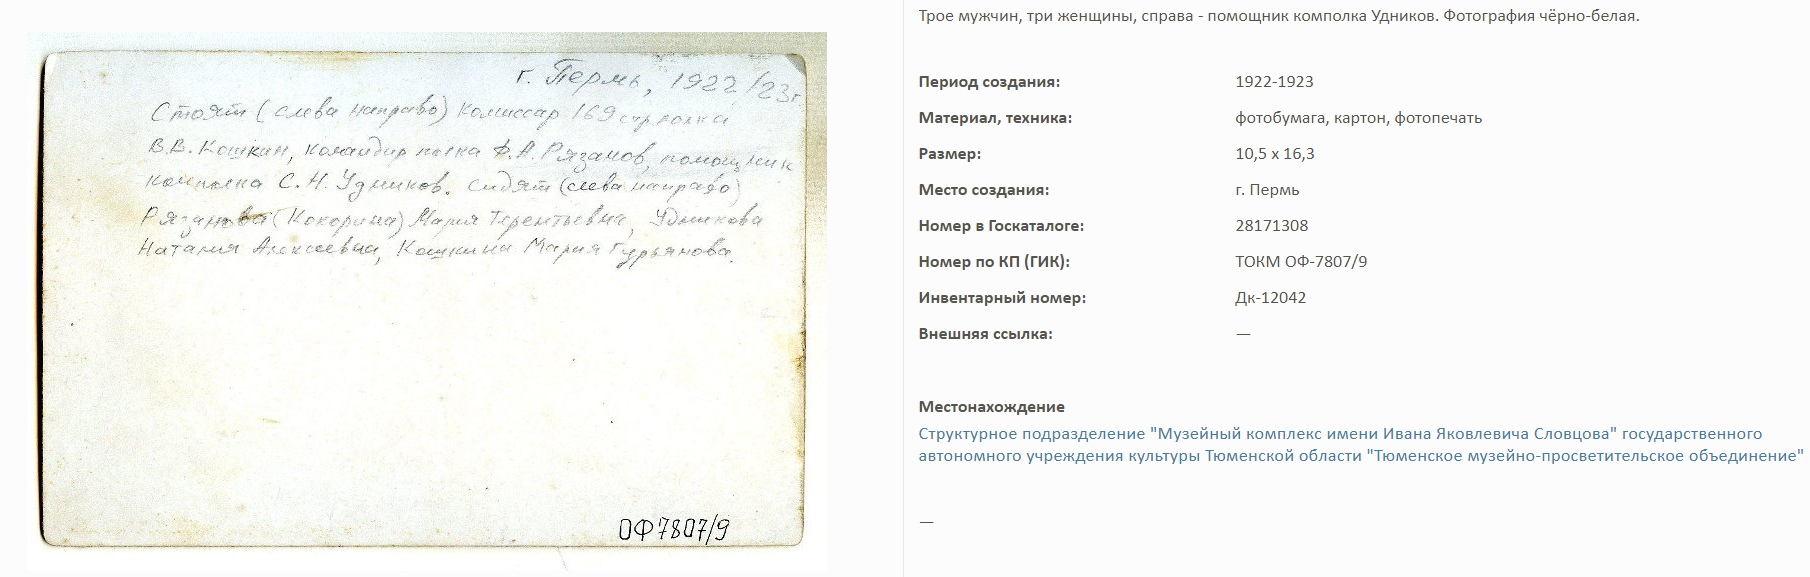 г. Пермь, 1922/23г.
Стоят (слева направо) комиссар 169 стрполка
В.В. Кошкин, командир полка Ф.А. Рязанов, помощник
комполка С.Н. Удников. Сидят (слева направо)
Рязанова (Кокорина) Мария Терентьевна, Удникова
Наталия Алексеевна, Кошкина Мария Гурьянова.
ОФ7807/9
Трое мужчин, три женщины, справа - помощник комполка Удников. Фотография чёрно-белая.
Период создания: 1922-1923
Материал, техника: фотобумага, картон, фотопечать
Размер: 10,5 х 16,3
Место создания: г. Пермь
Номер в Госкаталоге: 28171308
Номер по КП (ГИК): ТОКМ ОФ-7807/9
Инвентарный номер: Дк-12042
Внешняя ссылка: —
Местонахождение
Структурное подразделение "Музейный комплекс имени Ивана Яковлевича Словцова" государственного
автономного учреждения культуры Тюменской области "Тюменское музейно-просветительское объединение"
—